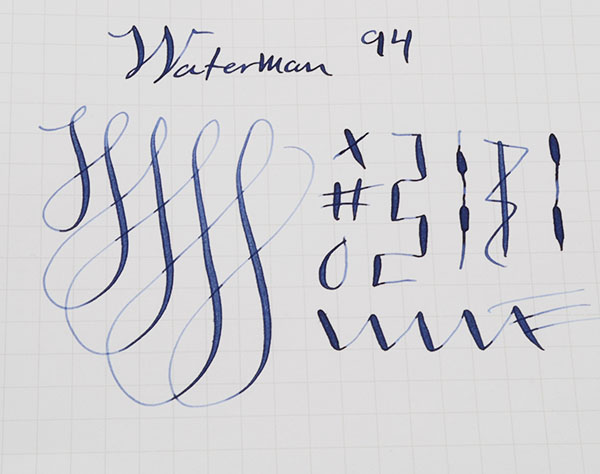 Waterman 94